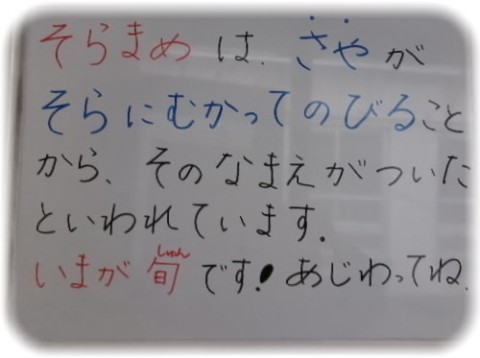 そらまめは、さやが
そらにむかってのびること
から、そのなまえがついた
といわれています。
いまが旬です！あじわってね。
しゅん